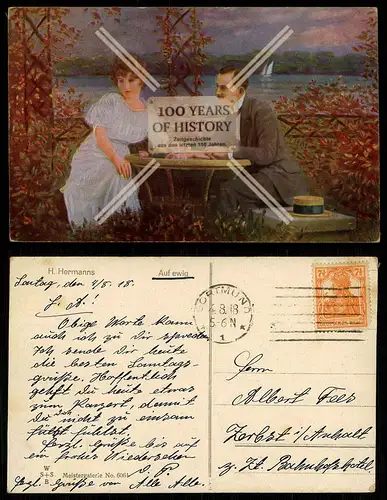 100 YEARS
OF HISTORY
Zeitgeschichte
aus den letzten 100 Jahren
H. Hermanns
Auf ewig
Sontag, den 4/8. 18.
L. A.!
Obige Worte kann
auch ich zu Dir
Ich sende Dir heute
die besten Sonntags-
grüße. Hoffentlich
gehst Du heut etwas
zum Konzert, damit
Du Dich nicht zu einsam
fühlst
Herzl. Grüße bis auf
ein frohes Wiedersehen
Hzgl. Grüße von Alle Alle.
W
S+S
B
Meistergalerie No. 6061
DORTMUND
4.8.18
5-6N
1
7½
7½
Herrn
Albert Faes
Zerbst i/Anhalt
z. Zt. Bahnhofhotel